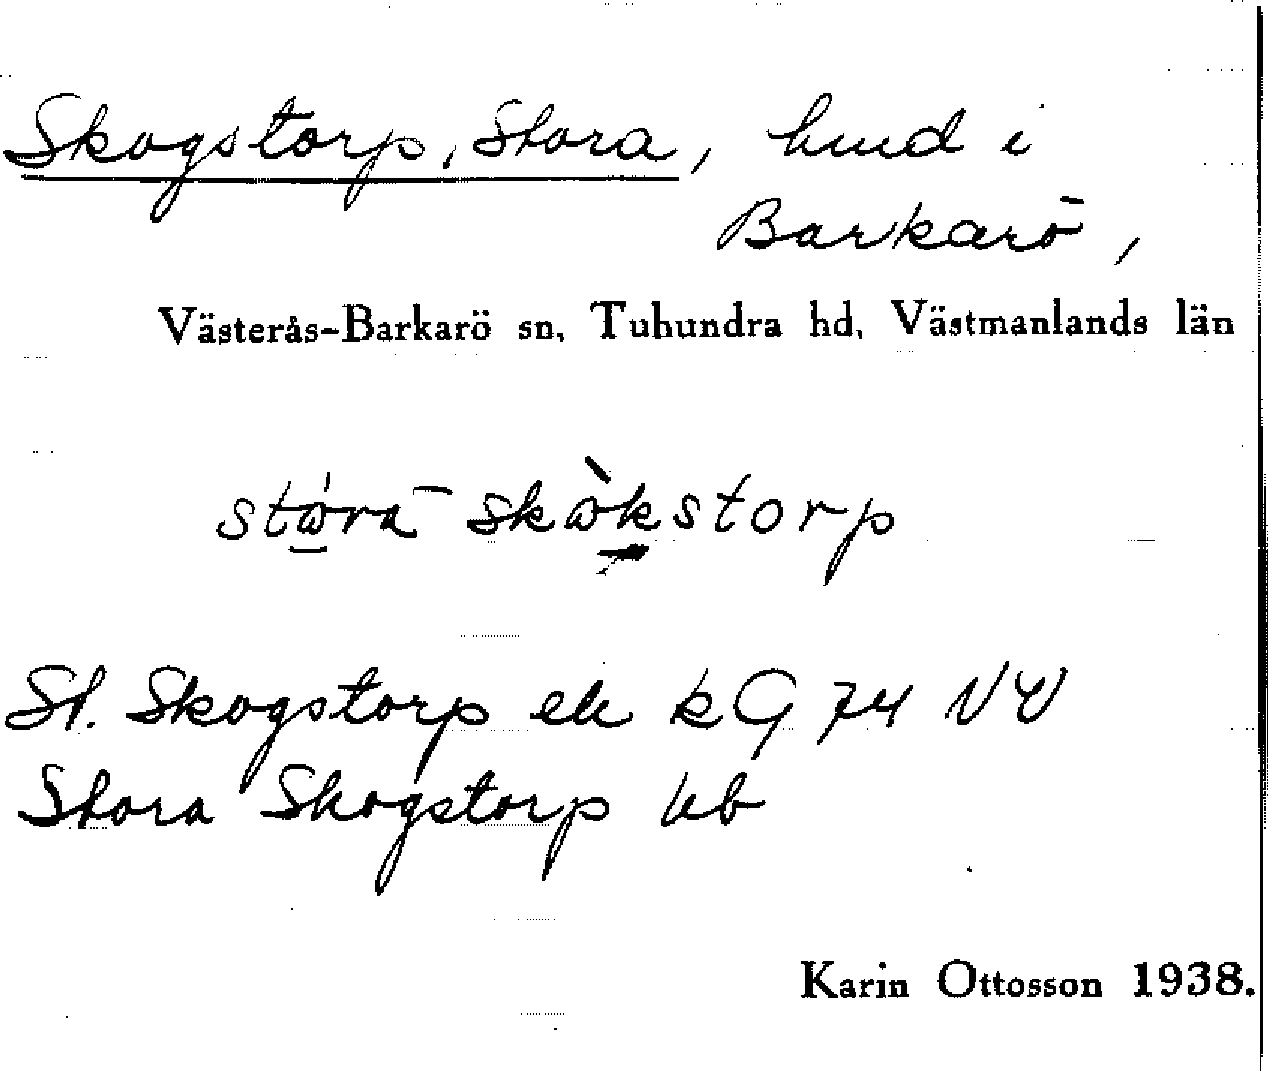 Skogstorp, Stora, hmd i
Barkarö,
Västerås-Barkarö sn, Tuhundra hd, Västmanlands län
stωra skωkstorp
St. Skogstorp ek kG 74 NV
Stora Skogstorp Jvb
Karin Ottosson 1938.